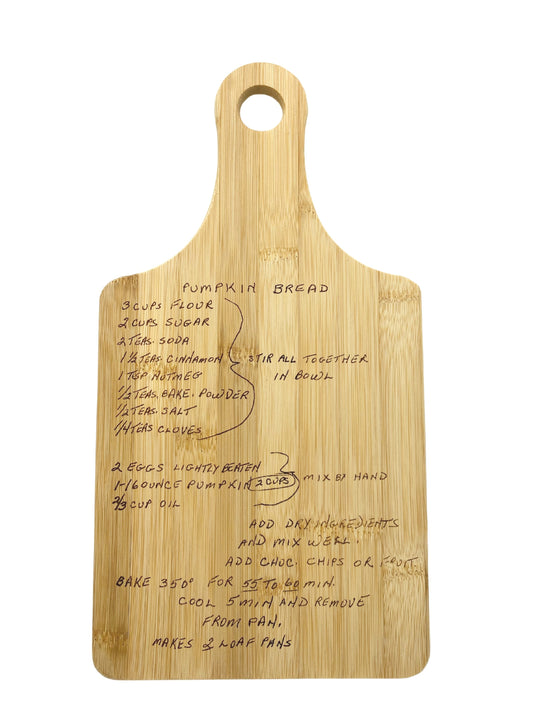 PUMPKIN BREAD
3 CUPS FLOUR
2 CUPS SUGAR
2 TEAS. SODA
1 1/2 TEAS. CINNAMON
1 TSP NUTMEG
1/2 TEAS. BAKE. POWDER
1/2 TEAS. SALT
1/4 TEAS CLOVES
STIR ALL TOGETHER
IN BOWL
2 EGGS LIGHTLY BEATEN
1-16 OUNCE PUMPKIN 2 CUPS
2/3 CUP OIL
MIX BY HAND
ADD DRY INGREDIENTS
AND MIX WELL.
ADD CHOC. CHIPS OR FRUIT.
BAKE 350° FOR 55 TO 60 MIN.
COOL 5 MIN AND REMOVE
FROM PAN.
MAKES 2 LOAF PANS